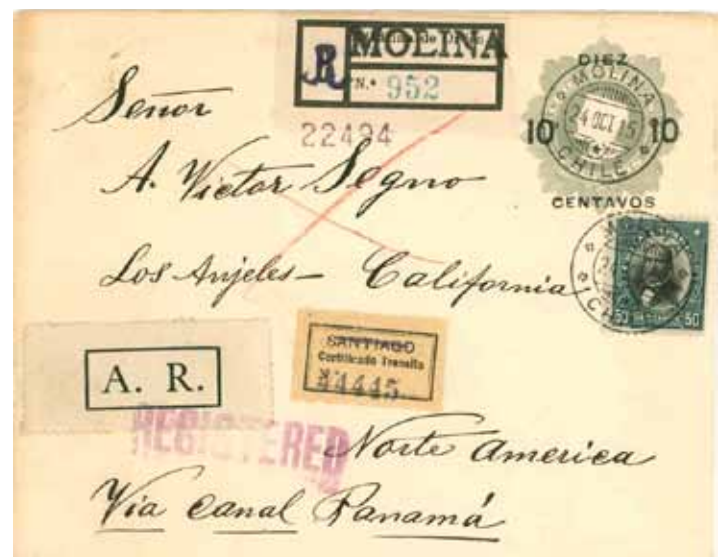 MOLINA
R
N.º 952
22494
DIEZ
MOLINA
24 OCT 15
10 10
CHILE
CENTAVOS
Señor
A. Victor Segno
Los Anjeles - California
50 50
A. R.
SANTIAGO
Certificado Transito
Nº 44445
REGISTERED
Norte America
Via Canal Panamá